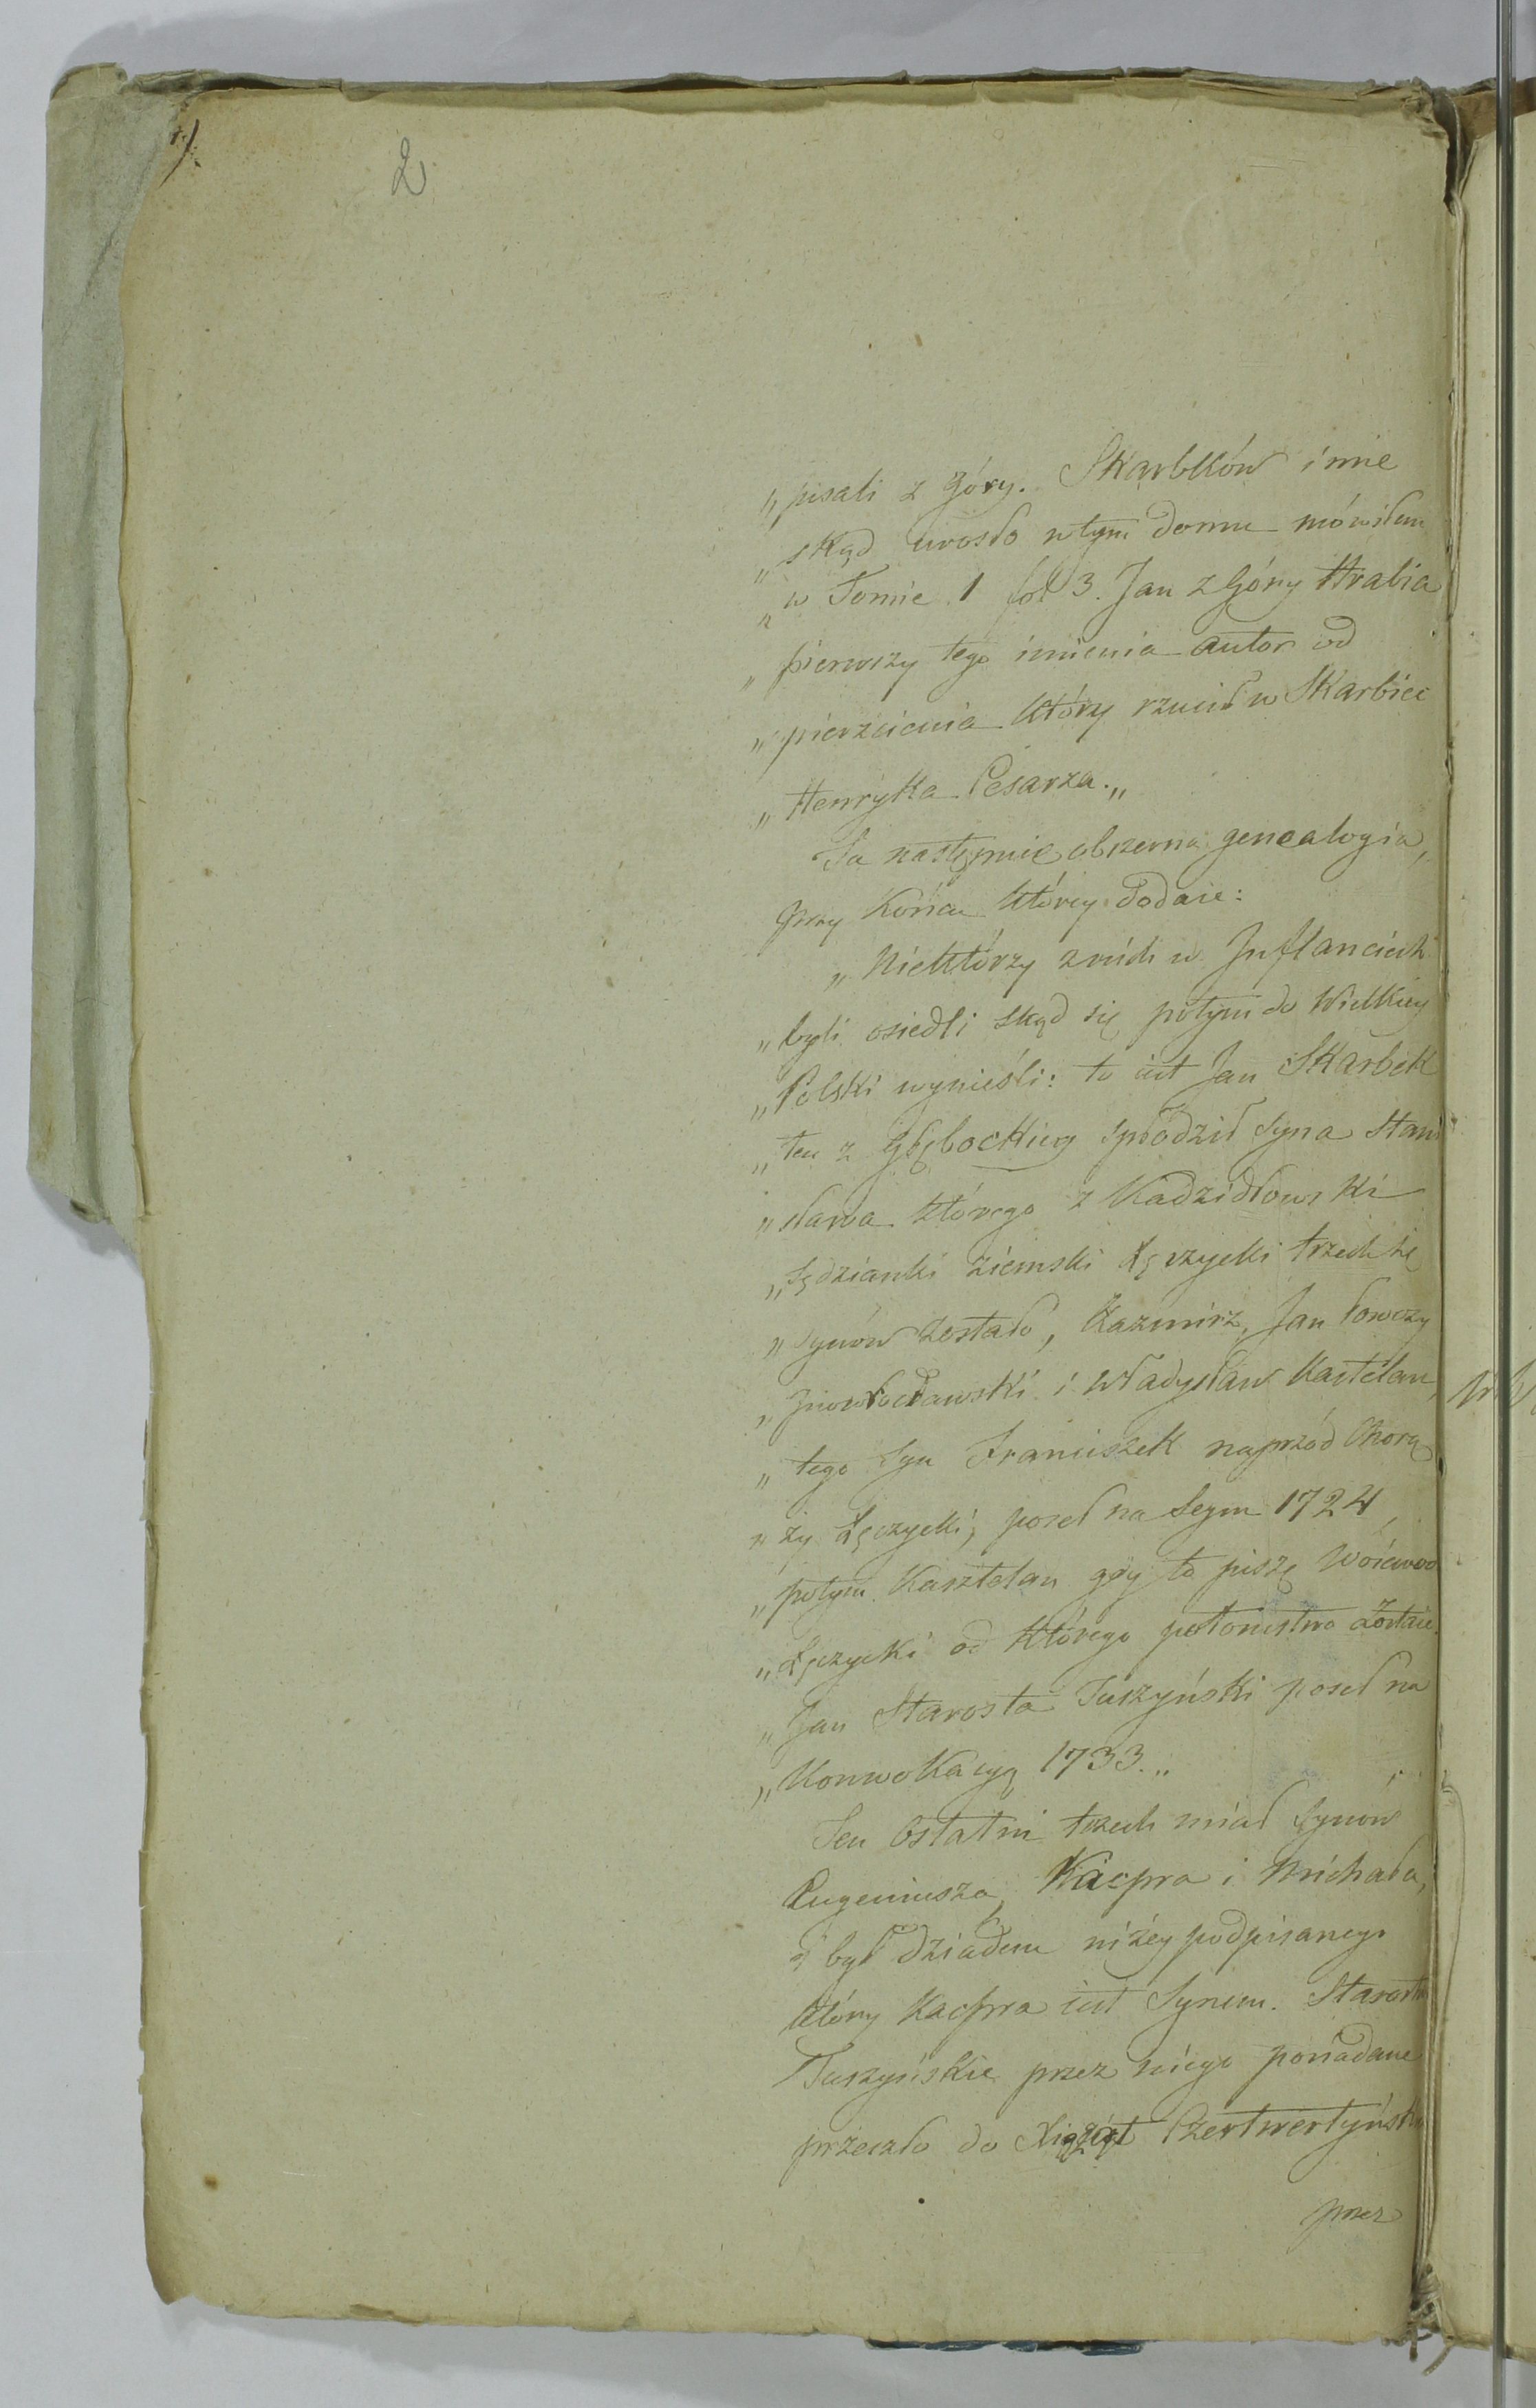 2
„pisali z Góry. Skarbków imie
„skąd urosło w tym domu mówiłem
„w Tomie 1 fol 3. Jan z Góry Hrabia
„pierwszy tego imienia autor od
„pierzcienia który rzucił w Skarbiec
„Henryka Cesarza.„
Ta następnie obszerna genealogia,
przy końcu którey dodaie:
„Niektórzy z nich w Inflanciech
„byli osiedli skąd się potym do Wielkiey
„Polski wynieśli: to iest Jan Skarbek
„ten z Głębockiey spłodził syna Stani
„sława którego z Kadzidłowski
„Sędzianki ziemski Łęczycki trzech się
„synów zostało, Kazmirz, Jan łowczy
„Inowłocławski i Władysław Kasztelan,
„tego Syn Franciszek naprzód Chorą
„ży Łęczycki, poseł na Seym 1724,
„potym Kasztelan gdy to piszę Woiewod
„Łęczycki od którego potomstwo zostaie.
„Jan Starosta Tuszyński poseł na
„Konwokacyą 1733.„
Ten ostatni trzech miał Synów
Eugeniusza, Kacpra i Michała,
i był dziadem niżey podpisanego
który Kacpra iest Synem. Starostw
Tuszyńskie przez niego posiadane
przeszło do Xiążąt Czertwertyński
przez